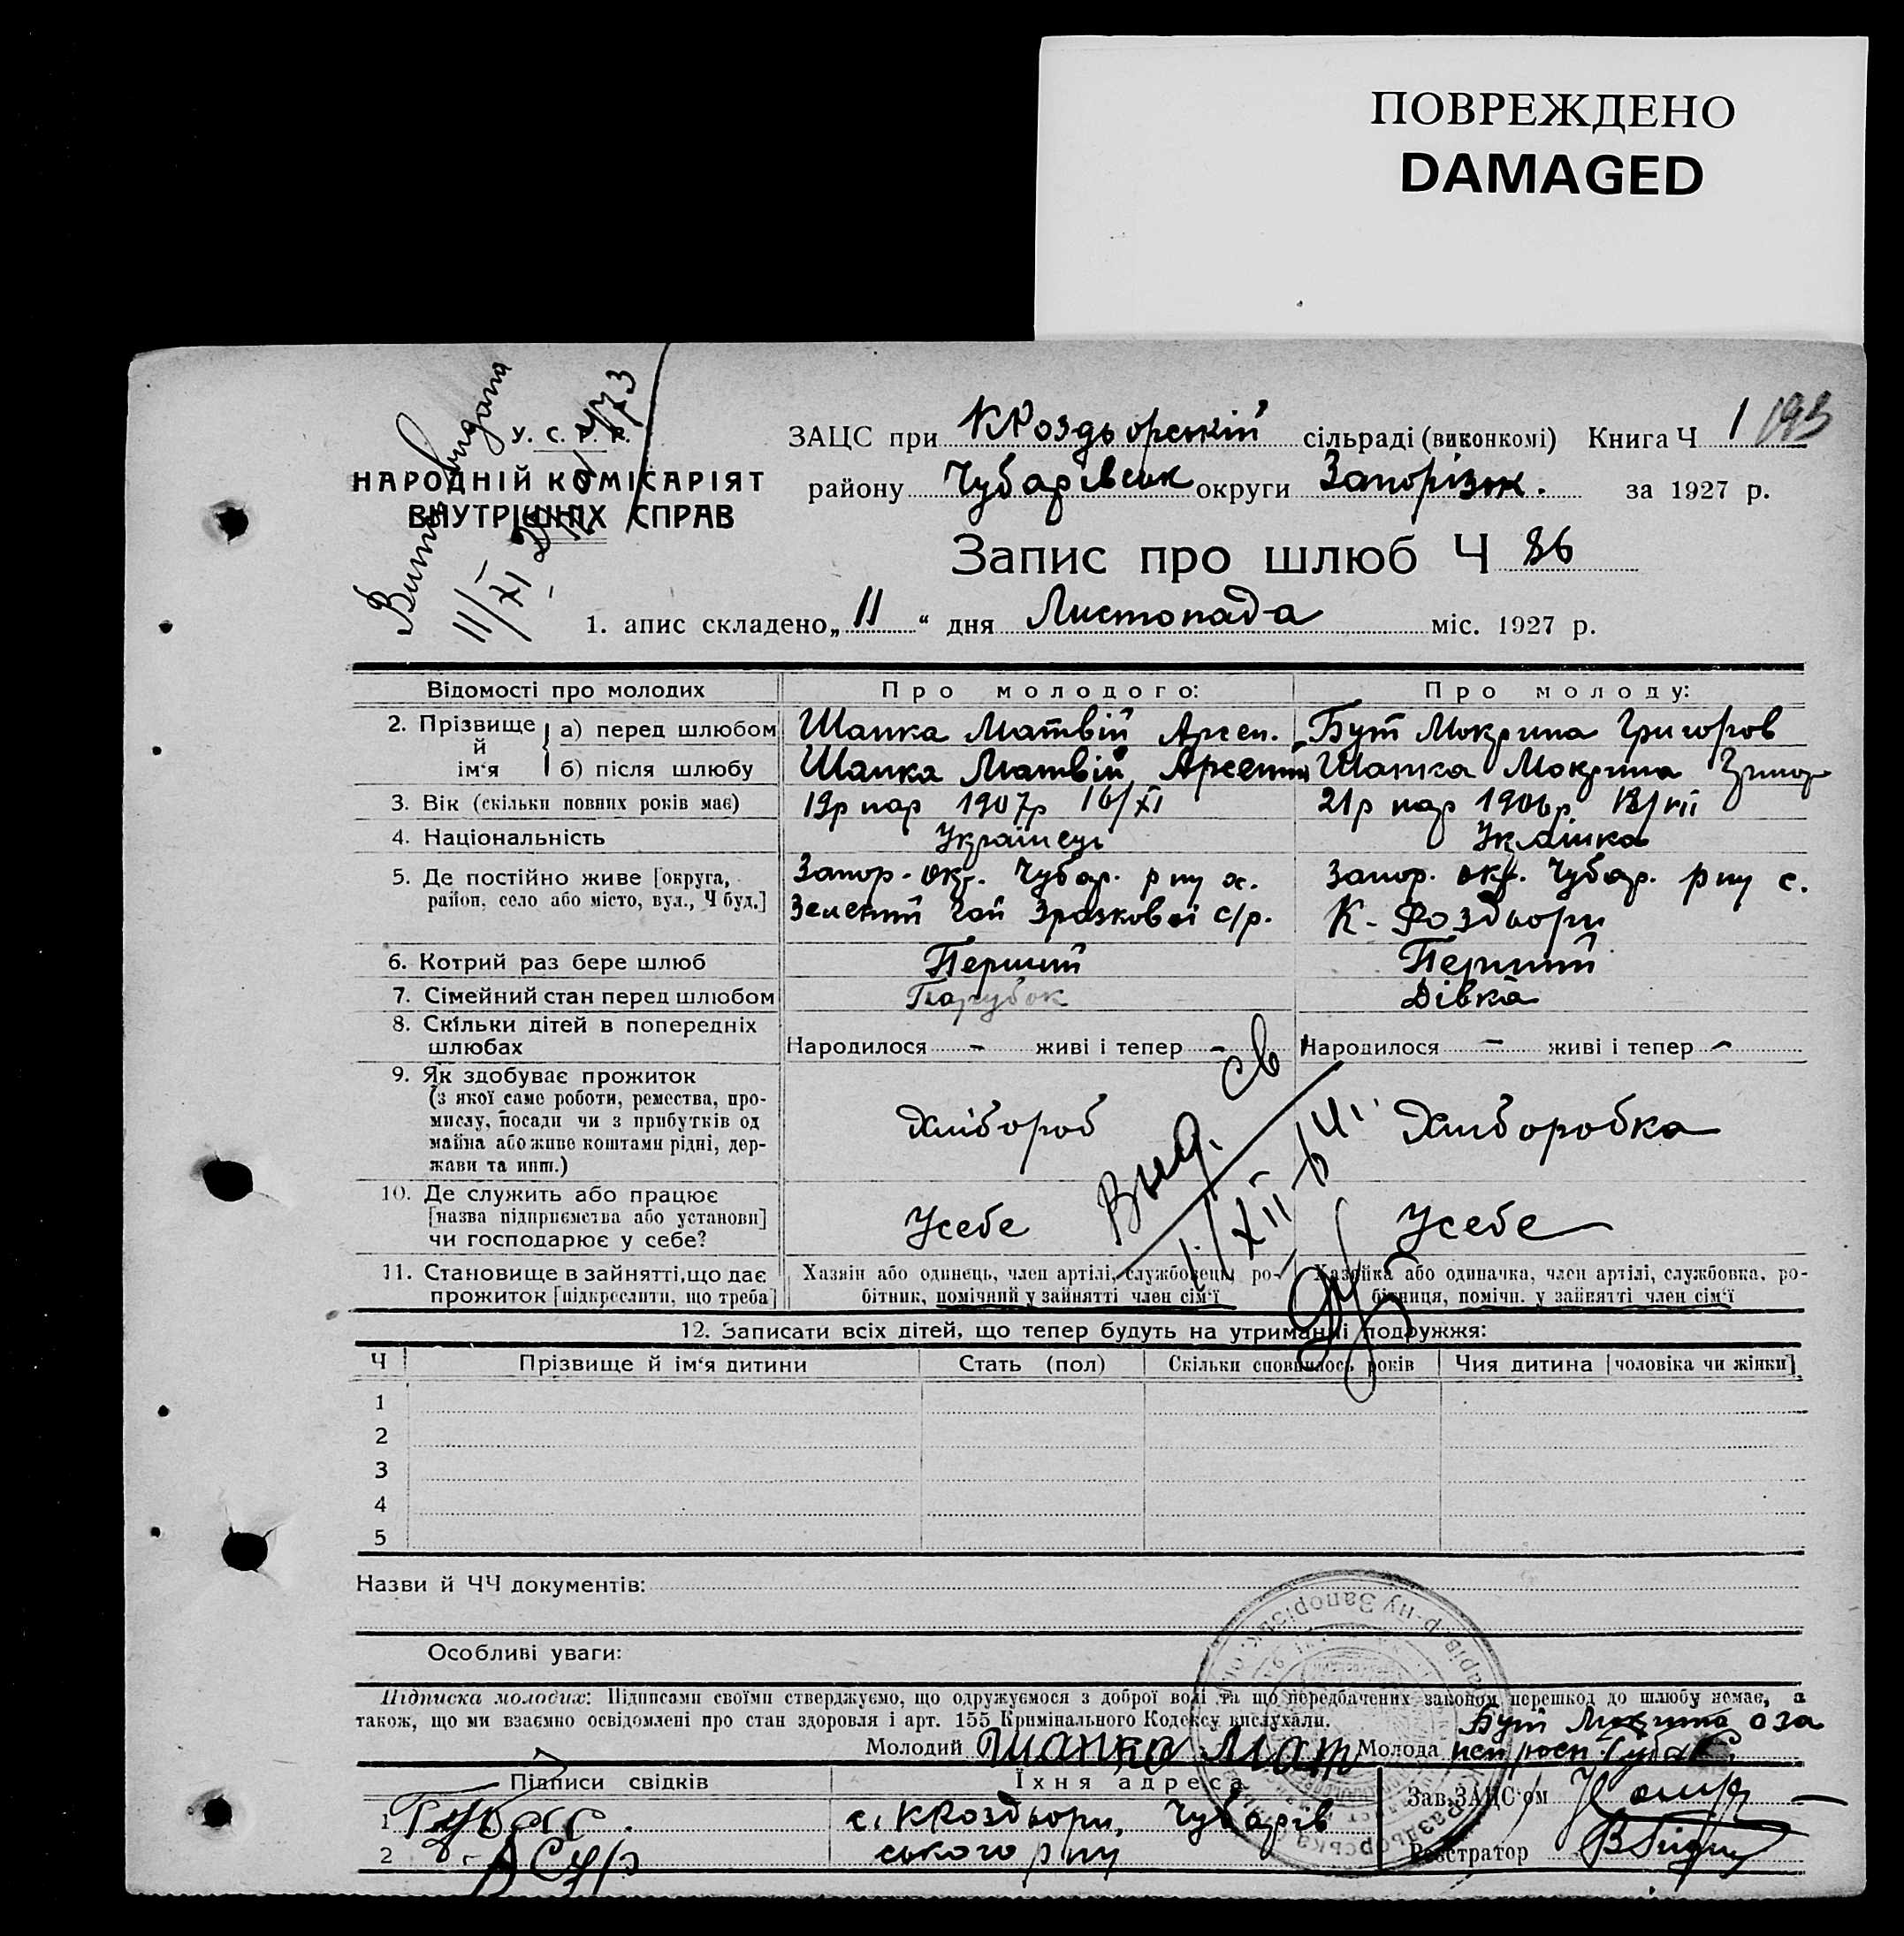 ПОВРЕЖДЕНО
DAMAGED
У. С. Р. Р.
НАРОДНІЙ КОМІСАРІЯТ
ВНУТРІШНІХ СПРАВ
Витяг видано
11/XI
ЗАЦС при КРоздьорській сільраді (виконкомі) Книга Ч 1 193
району Чубарівськ округи Запорізьк. за 1927 р.
Запис про шлюб Ч 86
1. апис складено „11“ дня Листопада міс. 1927 р.
Відомості про молодих Про молодого: Про молоду:
2. Прізвище й ім‘я а) перед шлюбом Шапка Матвій Арсен. Бут Мокрина Григоров
б) після шлюбу Шапка Матвій Арсентів Шапка Мокрина Григор
3. Вік (скільки повних років має) 19р нар 1907р 16/XI 21р нар 1906р 18/VII
4. Національність Українець Украінка
5. Де постійно живе [округа, район, село або місто, вул., Ч буд.] Запор. окр. Чубар. р ну х. Запор. окр. Чубар. р ну с.
Зелений Гай Зразковоі с/р. К-Роздьори
6. Котрий раз бере шлюб Перший Перший
7. Сімейний стан перед шлюбом Парубок Дівка
8. Скільки дітей в попередніх шлюбах Народилося - живі і тепер - Народилося - живі і тепер -
9. Як здобуває прожиток
(з якої саме роботи, ремества, про-
мислу, посади чи з прибутків од
майна або живе коштами рідні, дер-
жави та инш.) Хлібороб Хліборобка
Выд. св
10. Де служить або працює
[назва підприємства або установи]
чи господарює у себе? Усебе Усебе
11. Становище в зайнятті, що дає прожиток [підкреслити, що треба]
Хазяїн або одинець, член артілі, службовець, ро-
бітник, помічний у зайнятті член сім‘ї
Хазяйка або одиначка, член артілі, службовка, ро-
бітниця, помічн. у зайнятті член сім‘ї
12. Записати всіх дітей, що тепер будуть на утриманні подружжя:
Ч Прізвище й ім‘я дитини Стать (пол) Скільки сповнилось років Чия дитина [чоловіка чи жінки]
1
2
3
4
5
Назви й ЧЧ документів:
Особливі уваги:
Підписка молодих: Підписами своїми стверджуємо, що одружуємося з доброї волі та що передбачених законом перешкод до шлюбу немає, а
також, що ми взаємно освідомлені про стан здоровля і арт. 155 Кримінального Кодексу вислухали.
Бут Мокрина а за
Молодий Шапка Мат Молода неп росп Губа
Підписи свідків Їхня адреса Зав. ЗАЦС‘ом
1 с. КРоздьори, Чубарів
2 ського р ну Реєстратор